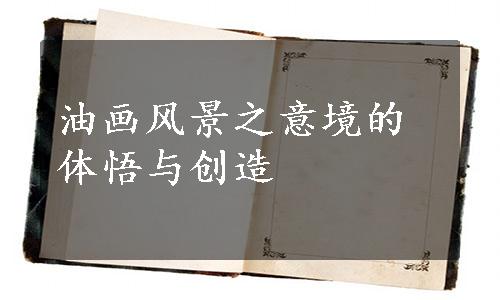 油画风景之意境的
体悟与创造